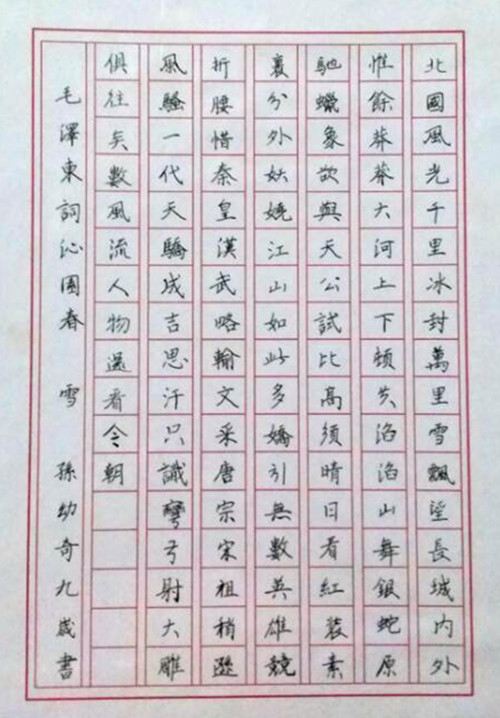 北國風光千里冰封萬里雪飄望長城内外
惟餘莽莽大河上下頓失滔滔山舞銀蛇原
馳蠟象欲與天公試比高須晴日看紅裝素
裹分外妖嬈江山如此多嬌引無數英雄競
折腰惜秦皇漢武略輸文采唐宗宋祖稍遜
風騷一代天驕成吉思汗只識彎弓射大雕
俱往矣數風流人物還看今朝
毛澤東詞沁園春 雪 孫幼奇九歲書